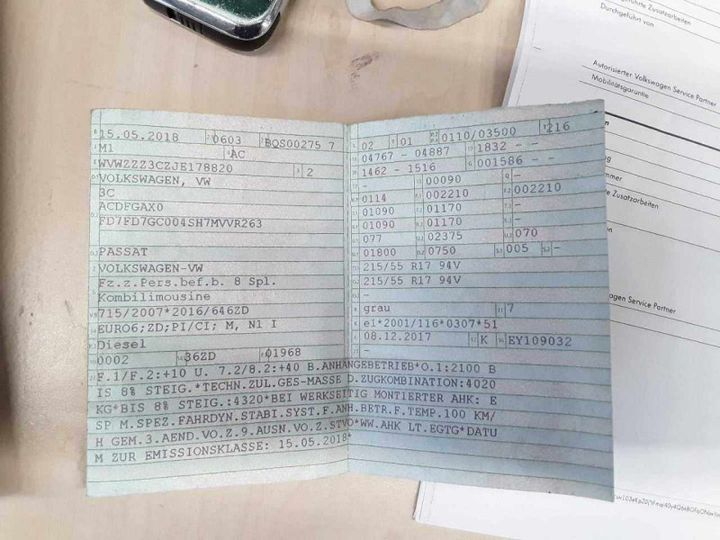 15.05.2018 0603 BQS00275 7
M1 AC
WVWZZZ3CZJE178820 2
VOLKSWAGEN, VW
3C
ACDFGAX0
FD7FD7GC004SH7MVVR263
PASSAT
VOLKSWAGEN-VW
Fz.z.Pers.bef.b. 8 Spl.
Kombilimousine
715/2007*2016/646ZD
EURO6;ZD;PI/CI; M, N1 I
Diesel
0002 36ZD 01968
02 01 0110/03500 216
04767 - 04887 1832 - -
1462 - 1516 001586 - -
- 00090 -
0114 002210 002210
01090 01170 -
01090 01170 -
077 02375 070
01800 0750 005 -
215/55 R17 94V
215/55 R17 94V
-
grau 7
e1*2001/116*0307*51
08.12.2017 K EY109032
F.1/F.2:+10 U. 7.2/8.2:+40 B.ANHÄNGEBETRIEB*O.1:2100 B
IS 8% STEIG.*TECHN.ZUL.GES-MASSE D.ZUGKOMBINATION:4020
KG*BIS 8% STEIG.:4320*BEI WERKSEITIG MONTIERTER AHK: E
SP M.SPEZ.FAHRDYN.STABI.SYST.F.ANH.BETR.F.TEMP.100 KM/
H GEM.3.AEND.VO.Z.9.AUSN.VO.Z.STVO*WW.AHK LT.EGTG*DATU
M ZUR EMISSIONSKLASSE: 15.05.2018*
Zusatzarbeiten
Durchgeführt von
Autorisierter Volkswagen Service Partner
Mobilitätsgarantie
Zusatzarbeiten
von
Service Partner